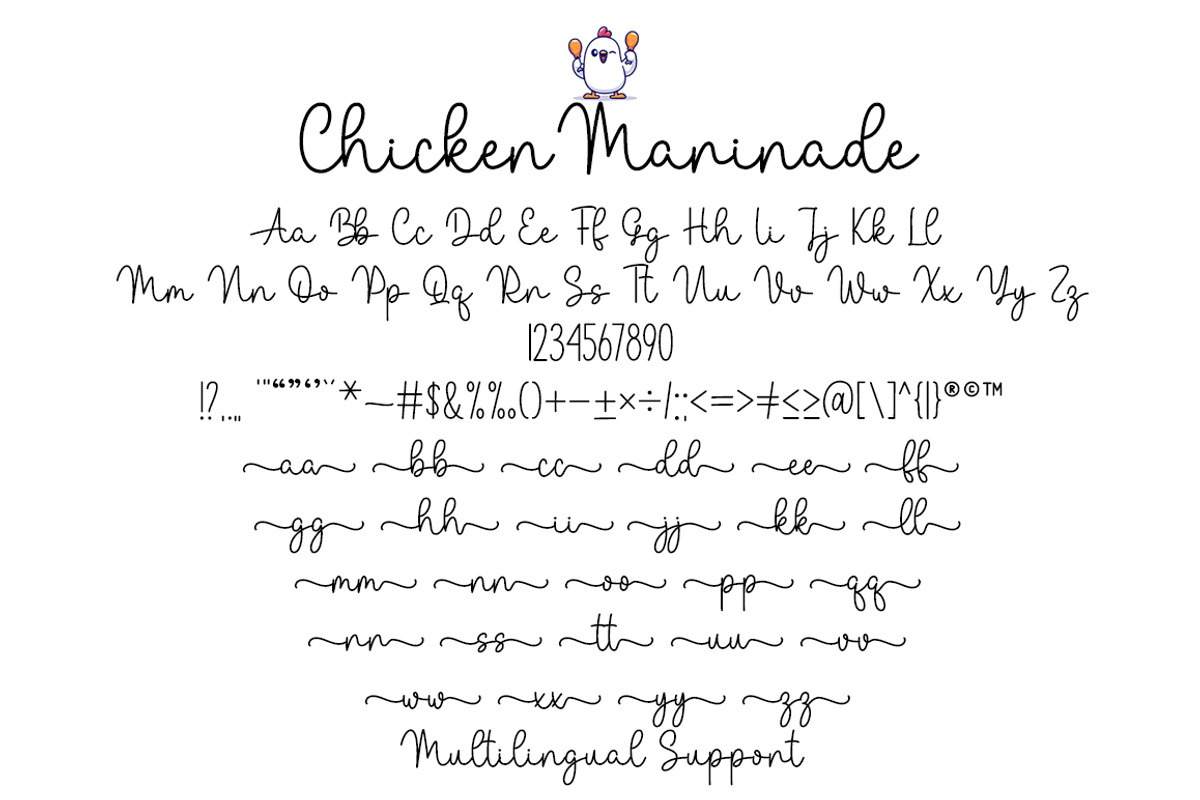 Chicken Marinade
Aa Bb Cc Dd Ee Ff Gg Hh Ii Jj Kk Ll
Mm Nn Oo Pp Qq Rr Ss Tt Uu Vv Ww Xx Yy Zz
1234567890
!?.,.„ '"“”‘’"` *_~#$&%‰()+−±×÷/:;<=>≠≤≥@[\]^{|}®©™
aa bb cc dd ee ff
gg hh ii jj kk ll
mm nn oo pp qq
rr ss tt uu vv
ww xx yy zz
Multilingual Support